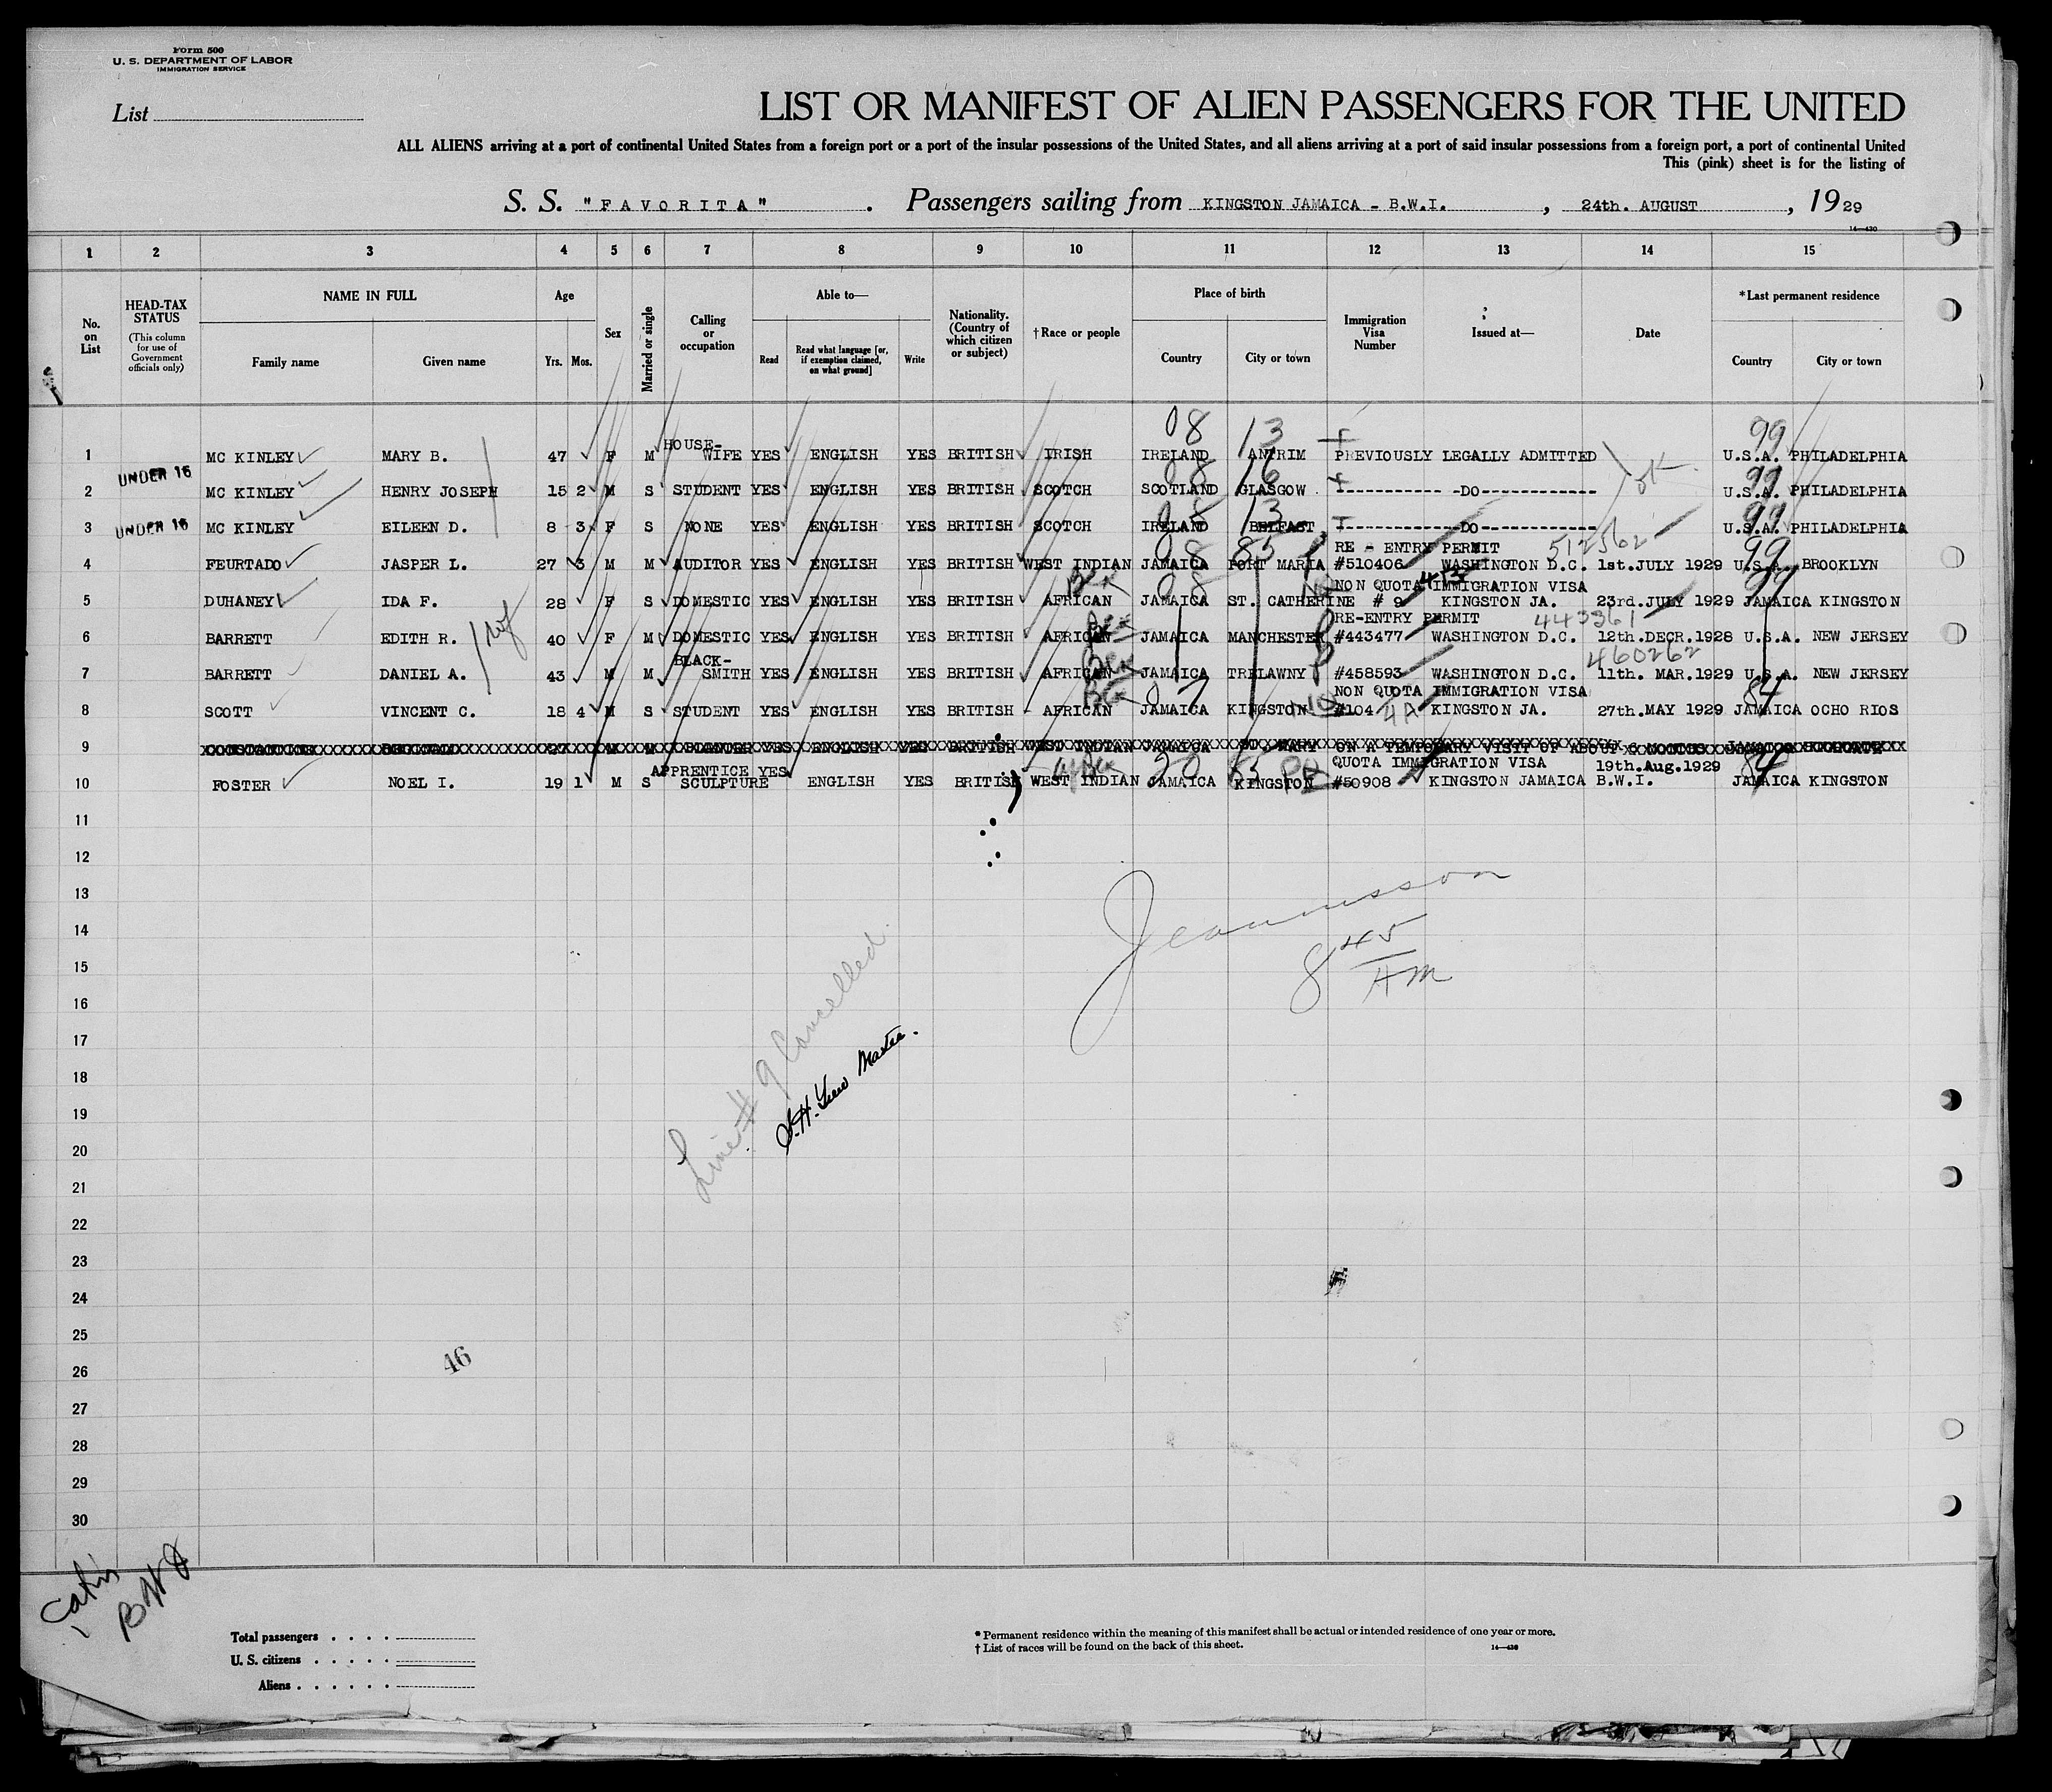 Form 500
U. S. DEPARTMENT OF LABOR
IMMIGRATION SERVICE
List
LIST OR MANIFEST OF ALIEN PASSENGERS FOR THE UNITED
ALL ALIENS arriving at a port of continental United States from a foreign port or a port of the insular possessions of the United States, and all aliens arriving at a port of said insular possessions from a foreign port, a port of continental United
This (pink) sheet is for the listing of
S. S. "FAVORITA". Passengers sailing from KINGSTON JAMAICA - B.W.I., 24th. AUGUST, 1929
14—430
1 2 3 4 5 6 7 8 9 10 11 12 13 14 15
No. on List
HEAD-TAX STATUS (This column for use of Government officials only)
NAME IN FULL
Family name Given name
Age
Yrs. Mos.
Sex
Married or single
Calling or occupation
Able to—
Read Read what language [or, if exemption claimed, on what ground] Write
Nationality. (Country of which citizen or subject)
†Race or people
Place of birth
Country City or town
Immigration Visa Number
Issued at—
Date
*Last permanent residence
Country City or town
08 13 99
1 MC KINLEY MARY B. 47 F M HOUSE-WIFE YES ENGLISH YES BRITISH IRISH IRELAND ANTRIM PREVIOUSLY LEGALLY ADMITTED U.S.A. PHILADELPHIA
UNDER 16 08 16 99 ok
2 MC KINLEY HENRY JOSEPH 15 2 M S STUDENT YES ENGLISH YES BRITISH SCOTCH SCOTLAND GLASGOW ------------DO------------ U.S.A. PHILADELPHIA
UNDER 16 08 13 99
3 MC KINLEY EILEEN D. 8 3 F S NONE YES ENGLISH YES BRITISH SCOTCH IRELAND BELFAST ------------DO------------ U.S.A. PHILADELPHIA
08 85 RE - ENTRY PERMIT 512562 99
4 FEURTADO JASPER L. 27 3 M M AUDITOR YES ENGLISH YES BRITISH WEST INDIAN JAMAICA PORT MARIA #510406 WASHINGTON D.C. 1st.JULY 1929 U.S.A. BROOKLYN
08 NON QUOTA IMMIGRATION VISA
5 DUHANEY IDA F. 28 F S DOMESTIC YES ENGLISH YES BRITISH AFRICAN JAMAICA ST. CATHERINE # 9 KINGSTON JA. 23rd.JULY 1929 JAMAICA KINGSTON
RE-ENTRY PERMIT 443361
6 BARRETT EDITH R. 40 F M DOMESTIC YES ENGLISH YES BRITISH AFRICAN JAMAICA MANCHESTER #443477 WASHINGTON D.C. 12th.DECR.1928 U.S.A. NEW JERSEY
460262
7 BARRETT DANIEL A. 43 M M BLACK-SMITH YES ENGLISH YES BRITISH AFRICAN JAMAICA TRELAWNY #458593 WASHINGTON D.C. 11th. MAR.1929 U.S.A. NEW JERSEY
NON QUOTA IMMIGRATION VISA 84
8 SCOTT VINCENT C. 18 4 M S STUDENT YES ENGLISH YES BRITISH AFRICAN JAMAICA KINGSTON #104 4A KINGSTON JA. 27th.MAY 1929 JAMAICA OCHO RIOS
9 27 M M PLANTER YES ENGLISH YES BRITISH WEST INDIAN JAMAICA ST. MARY ON A TEMPORARY VISIT OF ABOUT 6 MONTHS JAMAICA
QUOTA IMMIGRATION VISA 19th.Aug.1929 84
10 FOSTER NOEL I. 19 1 M S APPRENTICE SCULPTURE YES ENGLISH YES BRITISH WEST INDIAN JAMAICA KINGSTON #50908 KINGSTON JAMAICA B.W.I. JAMAICA KINGSTON
11
12
13
14
15
16
17
18
19
20
21
22
23
24
25
26
27
28
29
30
8 45 AM
Line # 9 Cancelled.
Master.
46
Total passengers
U. S. citizens
Aliens
* Permanent residence within the meaning of this manifest shall be actual or intended residence of one year or more.
† List of races will be found on the back of this sheet.
14—430